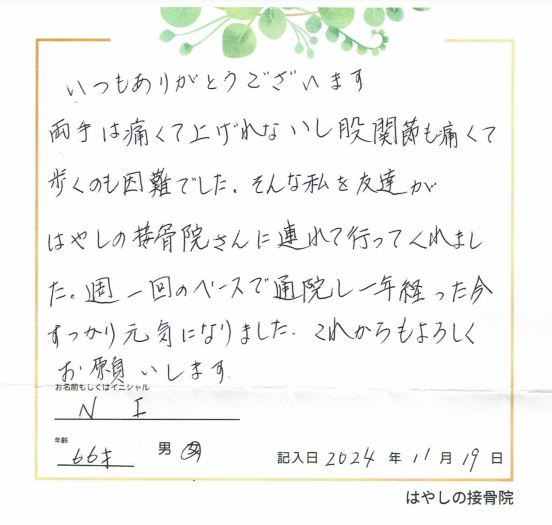 いつもありがとうございます
両手は痛くて上げれないし股関節も痛くて
歩くのも困難でした。そんな私を友達が
はやしの接骨院さんに連れて行ってくれまし
た。週一回のペースで通院し一年経った今
すっかり元気になりました。これからもよろしく
お願いします
お名前もしくはイニシャル
N I
年齢
66才 男 女 記入日 2024 年 11 月 19 日
はやしの接骨院